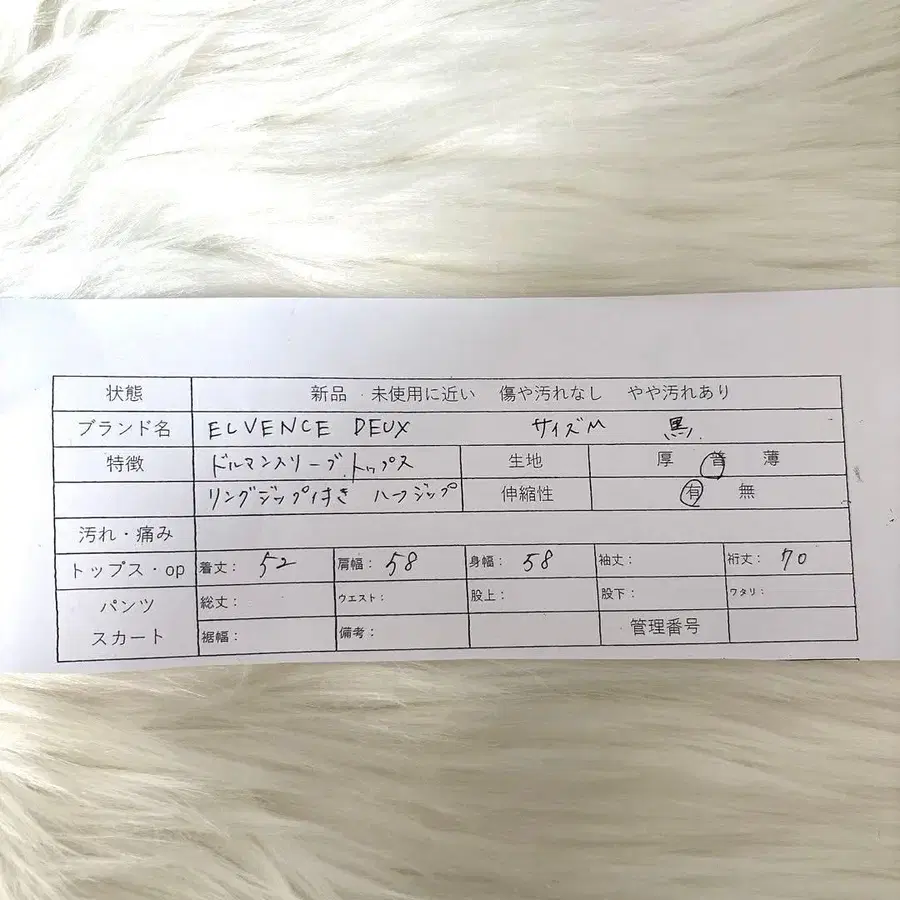 状態 新品・未使用に近い 傷や汚れなし やや汚れあり
ブランド名 ELVENCE DEUX サイズM 黒
特徴 ドルマンスリーブ トップス 生地 厚 普 薄
リングジップ付き ハーフジップ 伸縮性 有 無
汚れ・痛み
トップス・op 着丈: 52 肩幅: 58 身幅: 58 袖丈: 裄丈: 70
パンツ 総丈: ウエスト: 股上: 股下: ワタリ:
スカート 裾幅: 備考: 管理番号